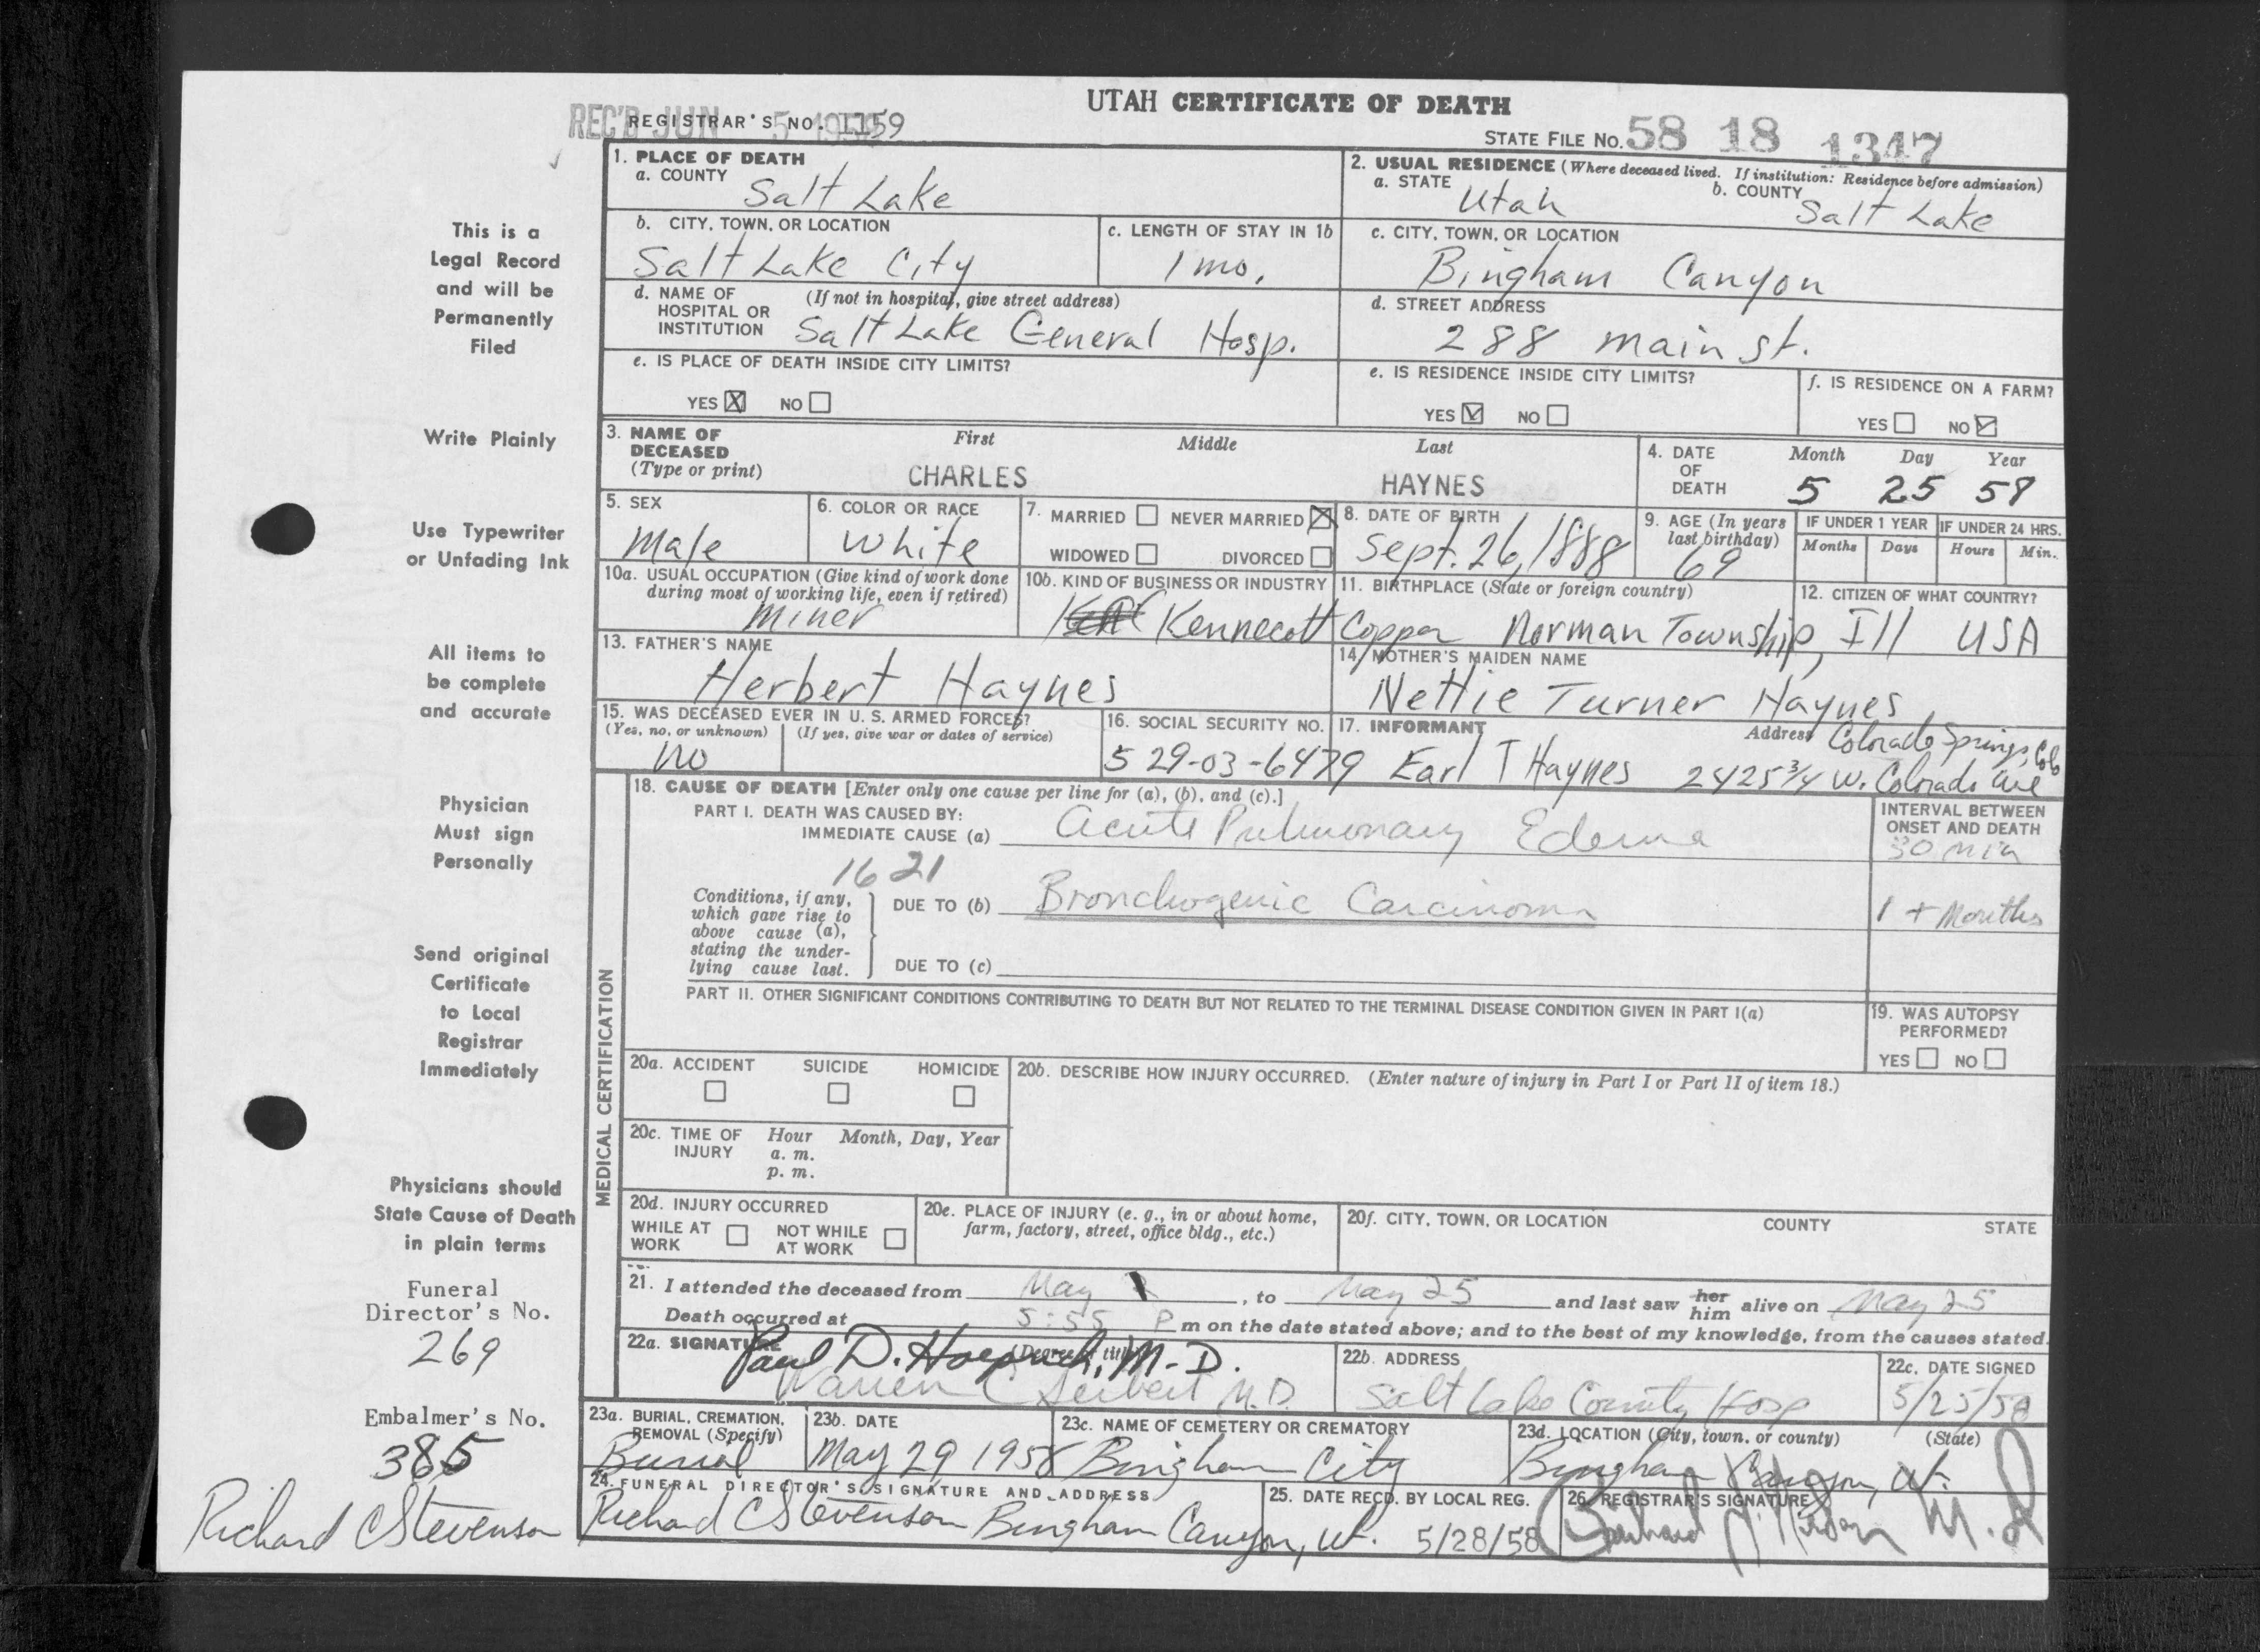 UTAH CERTIFICATE OF DEATH
REC'D JUN 5 1958
REGISTRAR'S NO. 1159
STATE FILE NO. 58 18 1347
This is a
Legal Record
and will be
Permanently
Filed
Write Plainly
Use Typewriter
or Unfading Ink
All items to
be complete
and accurate
Physician
Must sign
Personally
Send original
Certificate
to Local
Registrar
Immediately
Physicians should
State Cause of Death
in plain terms
Funeral
Director's No.
269
Embalmer's No.
385
Richard C Stevenson
1. PLACE OF DEATH
a. COUNTY Salt Lake
2. USUAL RESIDENCE (Where deceased lived. If institution: Residence before admission)
a. STATE Utah b. COUNTY Salt Lake
b. CITY, TOWN, OR LOCATION
Salt Lake City
c. LENGTH OF STAY IN 1b
1 mo.
c. CITY, TOWN, OR LOCATION
Bingham Canyon
d. NAME OF HOSPITAL OR INSTITUTION (If not in hospital, give street address)
Salt Lake General Hosp.
d. STREET ADDRESS
288 main st.
e. IS PLACE OF DEATH INSIDE CITY LIMITS?
YES X NO
e. IS RESIDENCE INSIDE CITY LIMITS?
YES NO
f. IS RESIDENCE ON A FARM?
YES NO
3. NAME OF DECEASED (Type or print)
First Middle Last
CHARLES HAYNES
4. DATE OF DEATH
Month Day Year
5 25 58
5. SEX
Male
6. COLOR OR RACE
White
7. MARRIED NEVER MARRIED X
WIDOWED DIVORCED
8. DATE OF BIRTH
Sept. 26, 1888
9. AGE (In years last birthday)
69
IF UNDER 1 YEAR
Months Days
IF UNDER 24 HRS.
Hours Min.
10a. USUAL OCCUPATION (Give kind of work done during most of working life, even if retired)
Miner
10b. KIND OF BUSINESS OR INDUSTRY
Kennecott Copper
11. BIRTHPLACE (State or foreign country)
Norman Township, Ill
12. CITIZEN OF WHAT COUNTRY?
USA
13. FATHER'S NAME
Herbert Haynes
14. MOTHER'S MAIDEN NAME
Nettie Turner Haynes
15. WAS DECEASED EVER IN U. S. ARMED FORCES?
(Yes, no, or unknown) (If yes, give war or dates of service)
no
16. SOCIAL SECURITY NO.
529-03-6479
17. INFORMANT Address
Earl T Haynes 2425 3/4 W. Colorado Ave Colorado Springs, Colo
MEDICAL CERTIFICATION
18. CAUSE OF DEATH [Enter only one cause per line for (a), (b), and (c).]
PART I. DEATH WAS CAUSED BY:
IMMEDIATE CAUSE (a) Acute Pulmonary Edema
INTERVAL BETWEEN ONSET AND DEATH
30 min
1621
Conditions, if any, which gave rise to above cause (a), stating the underlying cause last.
DUE TO (b) Bronchogenic Carcinoma
1 + Months
DUE TO (c)
PART II. OTHER SIGNIFICANT CONDITIONS CONTRIBUTING TO DEATH BUT NOT RELATED TO THE TERMINAL DISEASE CONDITION GIVEN IN PART I(a)
19. WAS AUTOPSY PERFORMED?
YES NO
20a. ACCIDENT SUICIDE HOMICIDE
20b. DESCRIBE HOW INJURY OCCURRED. (Enter nature of injury in Part I or Part II of item 18.)
20c. TIME OF INJURY Hour Month, Day, Year
a. m.
p. m.
20d. INJURY OCCURRED
WHILE AT WORK NOT WHILE AT WORK
20e. PLACE OF INJURY (e. g., in or about home, farm, factory, street, office bldg., etc.)
20f. CITY, TOWN, OR LOCATION COUNTY STATE
21. I attended the deceased from May , to May 25 and last saw her him alive on May 25
Death occurred at 5:55 P m on the date stated above; and to the best of my knowledge, from the causes stated.
22a. SIGNATURE (Degree or title)
Paul D. Hoeprich, M.D.
Warren C Seibert M.D.
22b. ADDRESS
Salt Lake County Hosp
22c. DATE SIGNED
5/25/58
23a. BURIAL, CREMATION, REMOVAL (Specify)
Burial
23b. DATE
May 29 1958
23c. NAME OF CEMETERY OR CREMATORY
Bingham City
23d. LOCATION (City, town, or county) (State)
Bingham Canyon, Ut.
24. FUNERAL DIRECTOR'S SIGNATURE AND ADDRESS
Richard C Stevenson Bingham Canyon, Ut.
25. DATE RECD. BY LOCAL REG.
5/28/58
26. REGISTRAR'S SIGNATURE
M.D.